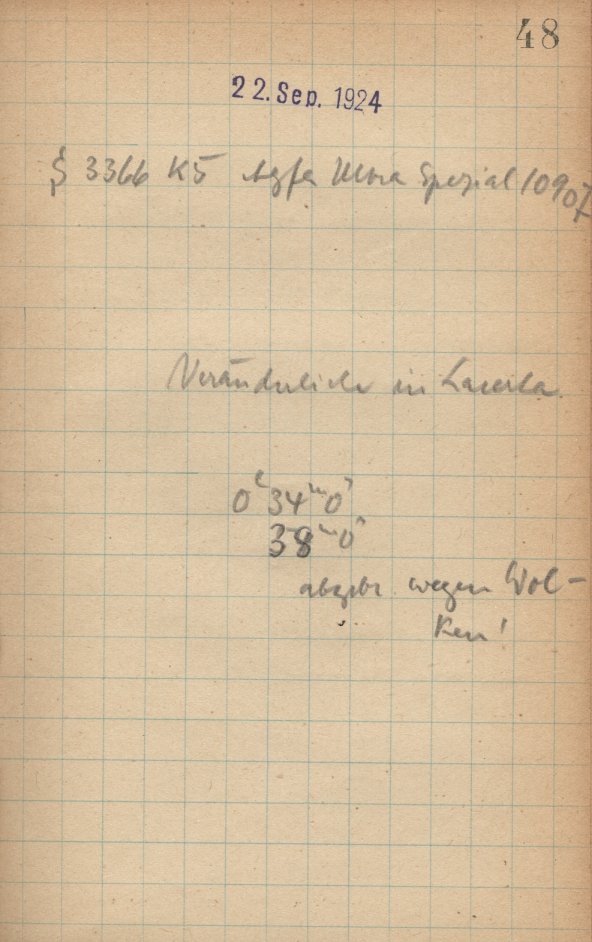 48
22. Sep. 1924
§ 3366 K5 Agfa Ultra Spezial 10907
Veränderliche in Lacerta
0ʰ 34ᵐ 0ˢ
38ᵐ 0ˢ
abgebr wegen Wol-
ken!